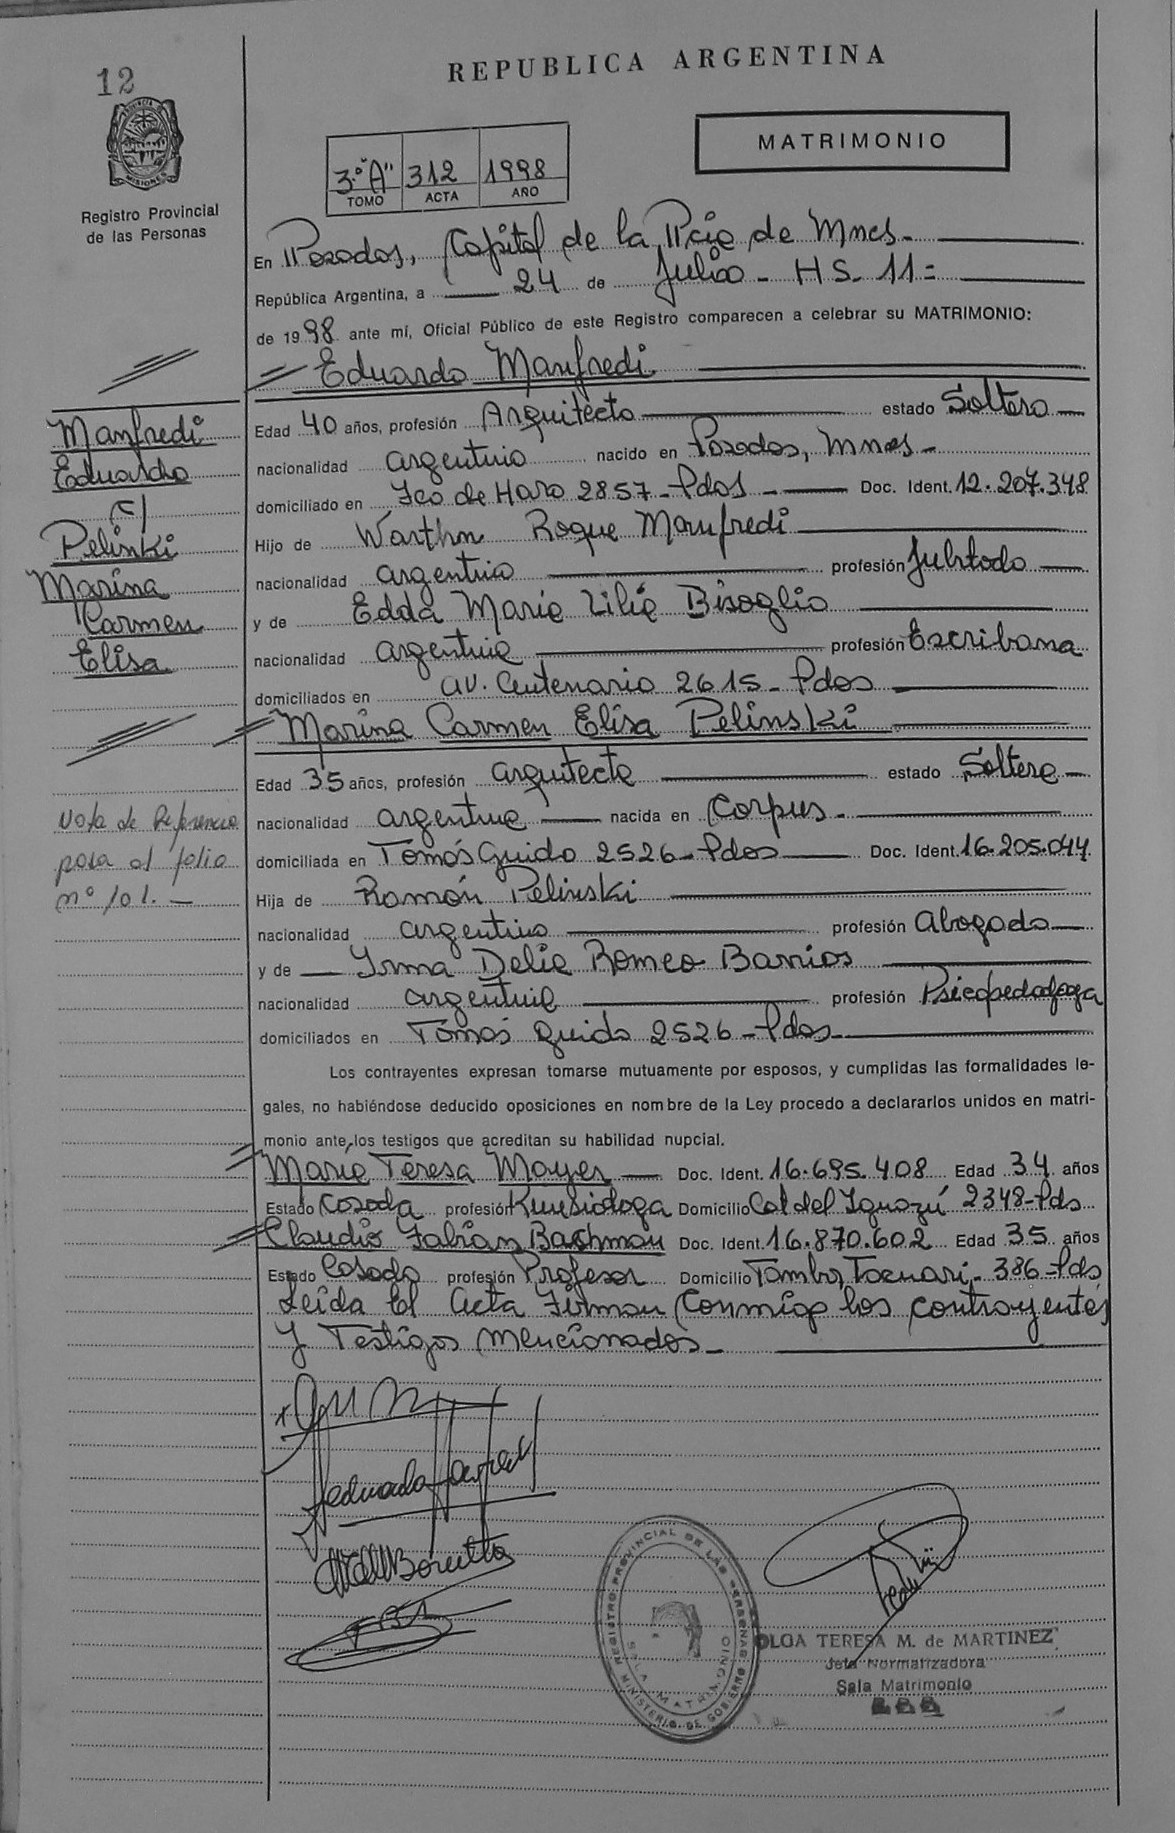 12
REPUBLICA ARGENTINA
MATRIMONIO
3º "A" 312 1998
TOMO ACTA AÑO
PROVINCIA DE MISIONES
Registro Provincial
de las Personas
En Posadas, Capital de la Pcia de Mnes.
República Argentina, a 24 de Julio - HS. 11=
de 1998 ante mí, Oficial Público de este Registro comparecen a celebrar su MATRIMONIO:
Eduardo Manfredi
Edad 40 años, profesión Arquitecto estado Soltero
nacionalidad argentino nacido en Posadas, Mnes-
domiciliado en Fco de Haro 2857-Pdas - Doc. Ident. 12.207.348
Hijo de Roque Manfredi
nacionalidad argentino profesión
y de Edda Maria Lilia Bisoglio
nacionalidad argentina profesión Escribana
domiciliados en av. Centenario 2615-Pdas
Marina Carmen Elisa Pelinski
Edad 35 años, profesión arquitecta estado Soltera
nacionalidad argentina nacida en Corpus.
domiciliada en Tomás Guido 2526-Pdas Doc. Ident. 16.205.044
Hija de Ramón Pelinski
nacionalidad argentino profesión Abogado
y de Irma Delia Romeo Barrios
nacionalidad argentina profesión Psicopedagoga
domiciliados en Tomás Guido 2526-Pdas-
Los contrayentes expresan tomarse mutuamente por esposos, y cumplidas las formalidades le-
gales, no habiéndose deducido oposiciones en nombre de la Ley procedo a declararlos unidos en matri-
monio ante los testigos que acreditan su habilidad nupcial.
Maria Teresa Mayer Doc. Ident. 16.695.408 Edad 34 años
Estado Casada profesión Kinesiologa Domicilio Cat del Iguazú 2348-Pds
Claudio Fabián Bachman Doc. Ident. 16.870.602 Edad 35 años
Estado Casado profesión Profesor Domicilio Tambor Tacuari- 386-Pds
Leida El Acta Firman Conmigo los contrayentes
y Testigos mencionados-
Manfredi
Eduardo
c/
Pelinki
Marina
Carmen
Elisa
Nota de Referencia
para al folio
nº 101.-
REGISTRO PROVINCIAL DE LAS PERSONAS
SALA MATRIMONIO
MINISTERIO DE GOBIERNO
OLGA TERESA M. de MARTINEZ
Jefa Normalizadora
Sala Matrimonio